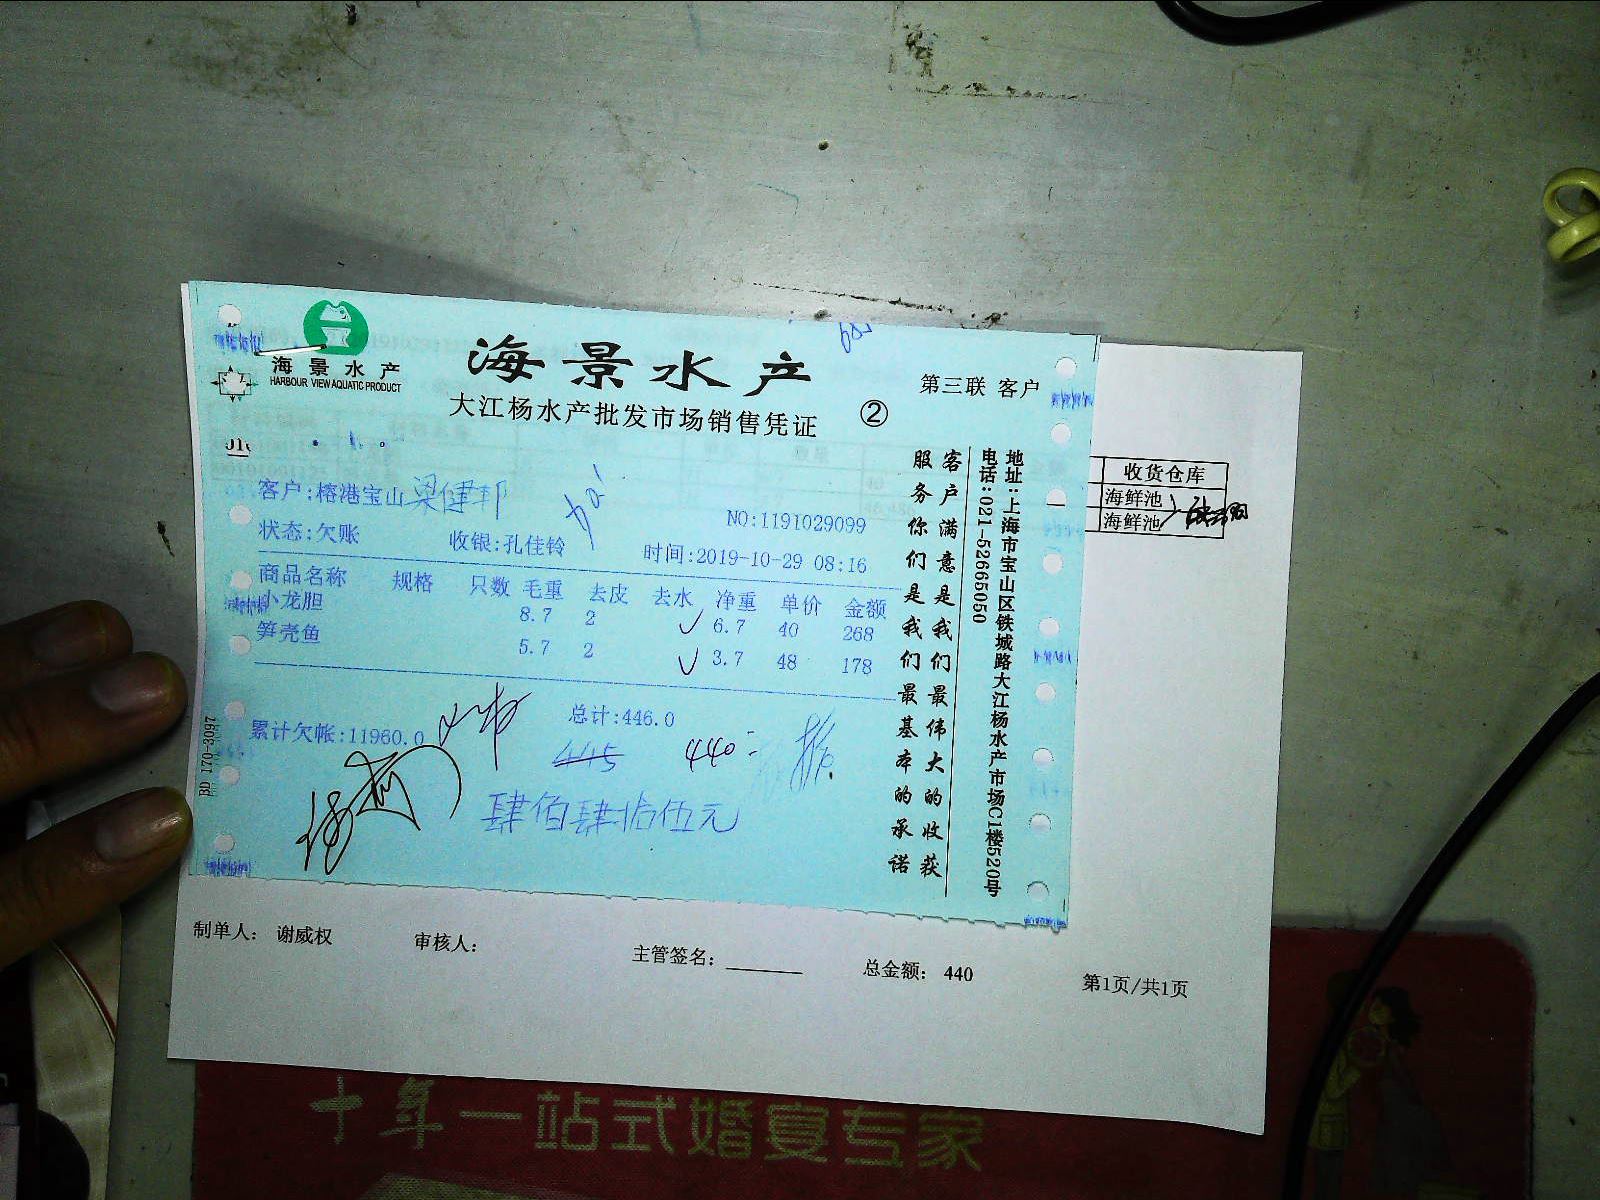 海景水产
HARBOUR VIEW AQUATIC PRODUCT
海景水产
大江杨水产批发市场销售凭证 ②
第三联 客户
客户:榕港宝山梁健邦
NO:1191029099
状态:欠账 收银:孔佳铃 时间:2019-10-29 08:16
商品名称 规格 只数 毛重 去皮 去水 净重 单价 金额
小龙胆 8.7 2 6.7 40 268
笋壳鱼 5.7 2 3.7 48 178
累计欠帐:11960.0 总计:446.0
445 440
肆佰肆拾伍元
BD 170-3097
客户满意是我们最伟大的收获
服务你们是我们最基本的承诺
地址:上海市宝山区铁城路大江杨水产市场C1楼520号
电话:021-52665050
收货仓库
海鲜池
海鲜池
制单人: 谢威权 审核人: 主管签名: 总金额: 440 第1页/共1页
十年一站式婚宴专家